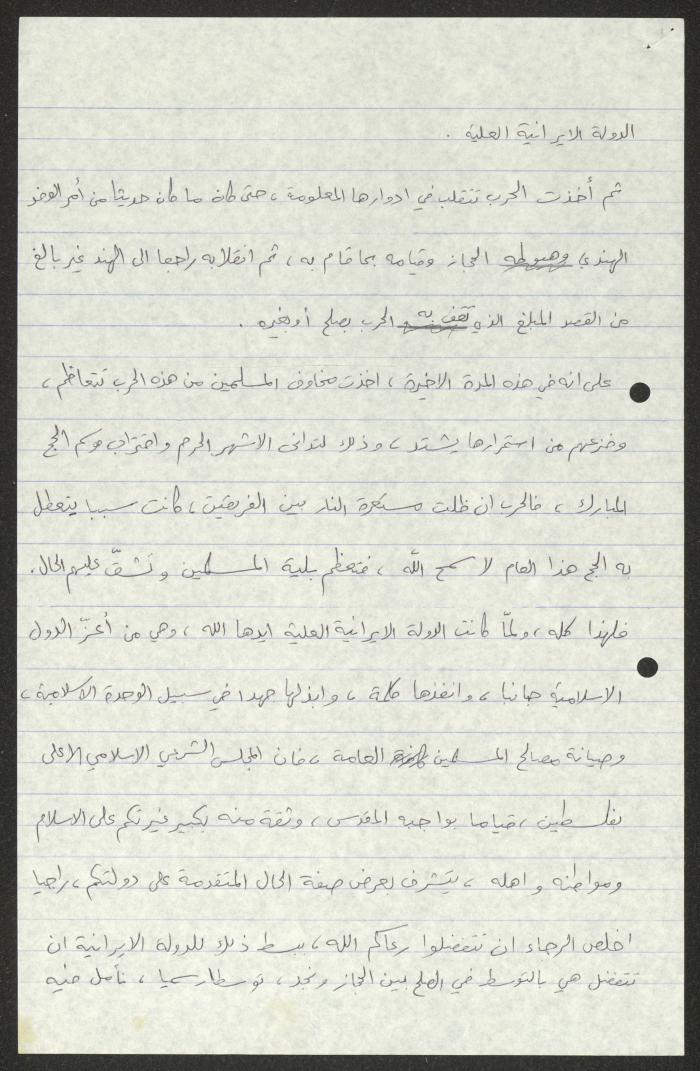 الدولة الايرانية العلية .
ثم أخذت الحرب تتقلب في ادوارها المعلومة ، حتى كان ما كان حديثا من أمر الوفد
الهندي وهبوطه الحجاز وقيامه بما قام به ، ثم انقلابه راجعا الى الهند غير بالغ
من القصد المبلغ الذي تقف به الحرب بصلح أو بغيره .
على انه في هذه المدة الاخيرة ، اخذت مخاوف المسلمين من هذه الحرب تتعاظم ،
وجزعهم من استمرارها يشتد ، وذلك لتدانى الاشهر الحرم واقتراب موسم الحج
المبارك ، فالحرب ان ظلت مستعرة النار بين الفريقين ، كانت سببا يتعطل
به الحج هذا العام لا سمح الله ، فتعظم بلية المسلمين وتشقّ عليهم الحال .
فلهذا كله ، ولمّا كانت الدولة الايرانية العلية ايدها الله ، وهي من أعزّ الدول
الاسلامية جانبا ، وانفذها كلمة ، وابذلها جهدا في سبيل الوحدة الاسلامية ،
وصيانة مصالح المسلمين العامة ، فان المجلس الشرعي الاسلامي الاعلى
بفلسطين ، قياما بواجبه المقدس ، وثقة منه بكبير غيرتكم على الاسلام
ومواطنه واهله ، يتشرف بعرض صفة الحال المتقدمة على دولتكم ، راجيا
اخلص الرجاء ان تتفضلوا رعاكم الله ، ببسط ذلك للدولة الايرانية ان
تتفضل هي بالتوسط في الصلح بين الحجاز ونجد ، توسطا رسميا ، نأمل منه